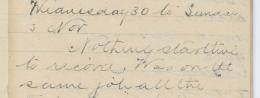 Wednesday 30 to Sunday
3 Nov
Nothing startling
to record. Was on the
same job all the